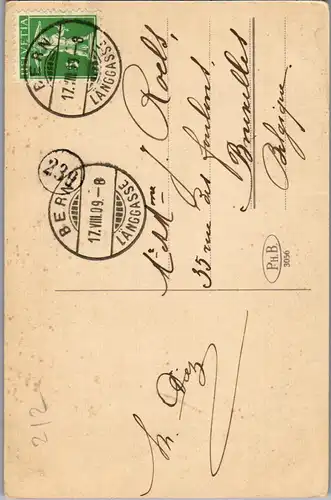 HELVETIA
BERN
17.VIII.09.-8
LÄNGGASSE
239
BERN
17.VIII.09.-8
LÄNGGASSE
J. Roels,
35 rue des Foulons,
Bruxelles
Belgique.
PH.B.
3056
Diez
2/2